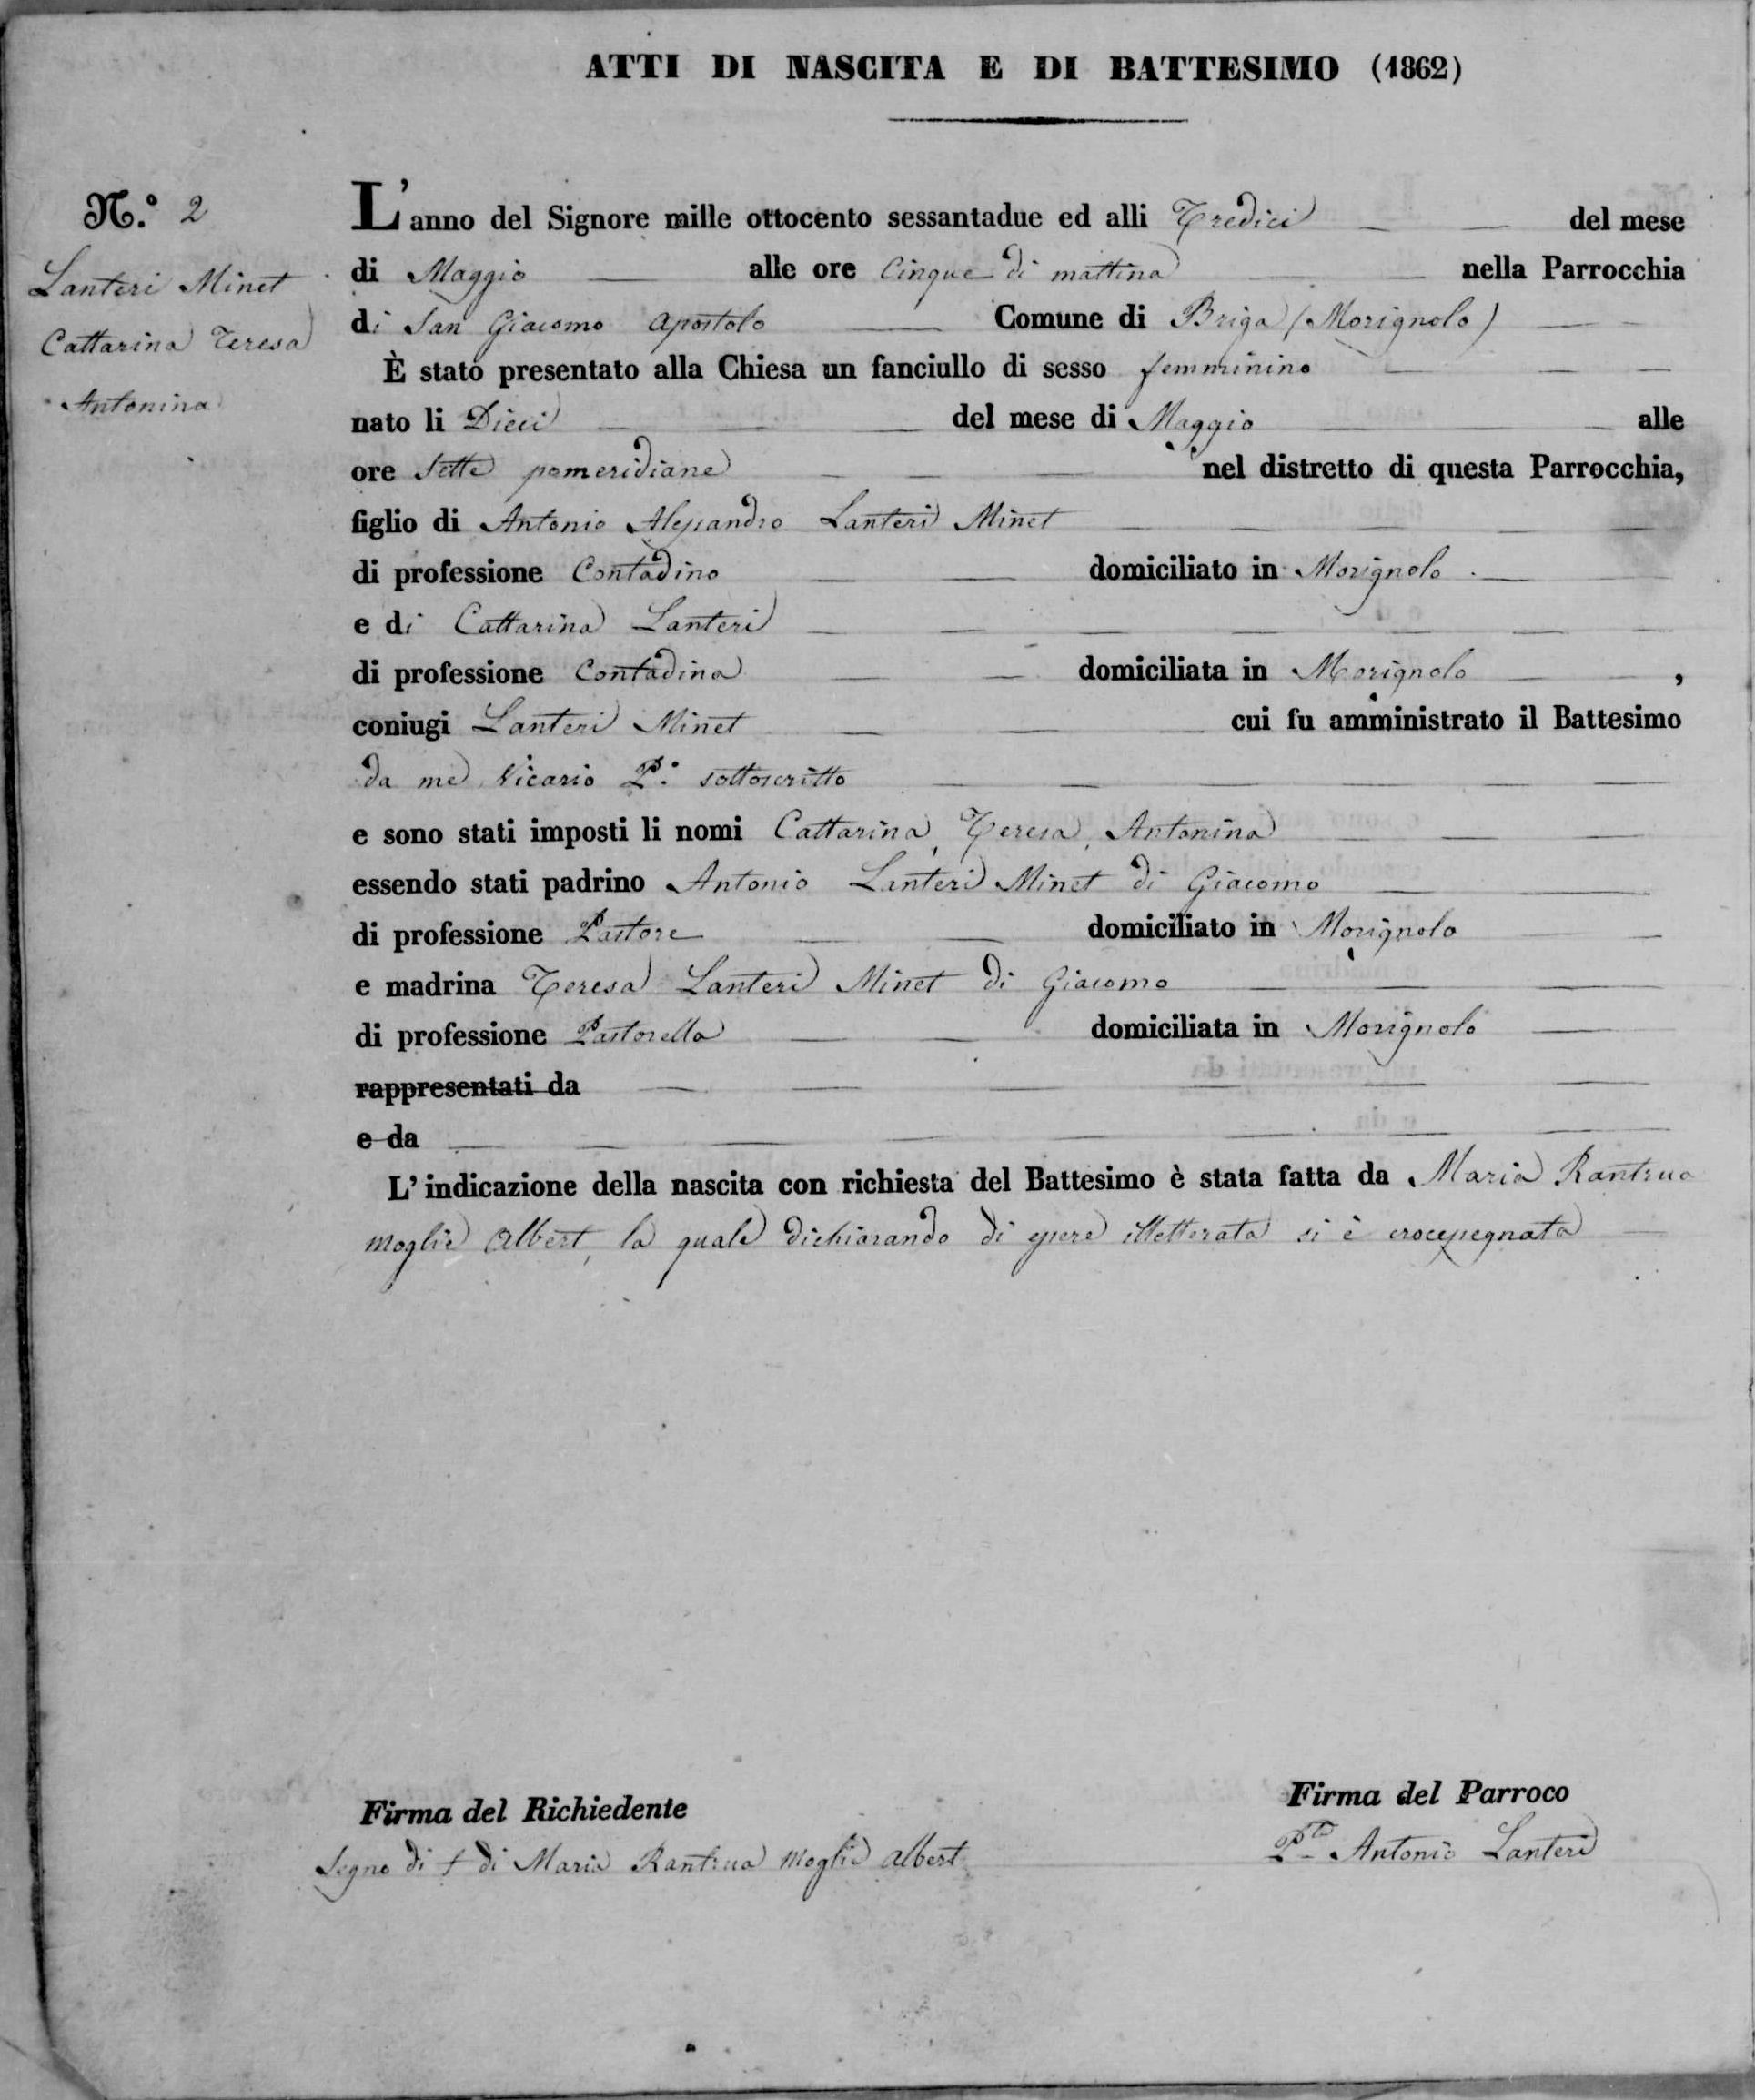 ATTI DI NASCITA E DI BATTESIMO (1862)
N.º 2
Lanteri Minet
Cattarina Teresa
Antonina
L'anno del Signore mille ottocento sessantadue ed alli Tredici del mese
di Maggio alle ore Cinque di mattina nella Parrocchia
di San Giacomo Apostolo Comune di Briga (Morignolo)
È stato presentato alla Chiesa un fanciullo di sesso femminino
nato li Dieci del mese di Maggio alle
ore Sette pomeridiane nel distretto di questa Parrocchia,
figlio di Antonio Alessandro Lanteri Minet
di professione Contadino domiciliato in Morignolo
e di Cattarina Lanteri
di professione Contadina domiciliata in Morignolo ,
coniugi Lanteri Minet cui fu amministrato il Battesimo
da me Vicario P.º sottoscritto
e sono stati imposti li nomi Cattarina, Teresa, Antonina
essendo stati padrino Antonio Lanteri Minet di Giacomo
di professione Pastore domiciliato in Morignolo
e madrina Teresa Lanteri Minet di Giacomo
di professione Pastorella domiciliata in Morignolo
rappresentati da
e da
L'indicazione della nascita con richiesta del Battesimo è stata fatta da Maria Rantrua
moglie Albert, la quale dichiarando di essere illetterata si è crocesegnata
Firma del Richiedente
Segno di † di Maria Rantrua moglie Albert
Firma del Parroco
P.te Antonio Lanteri